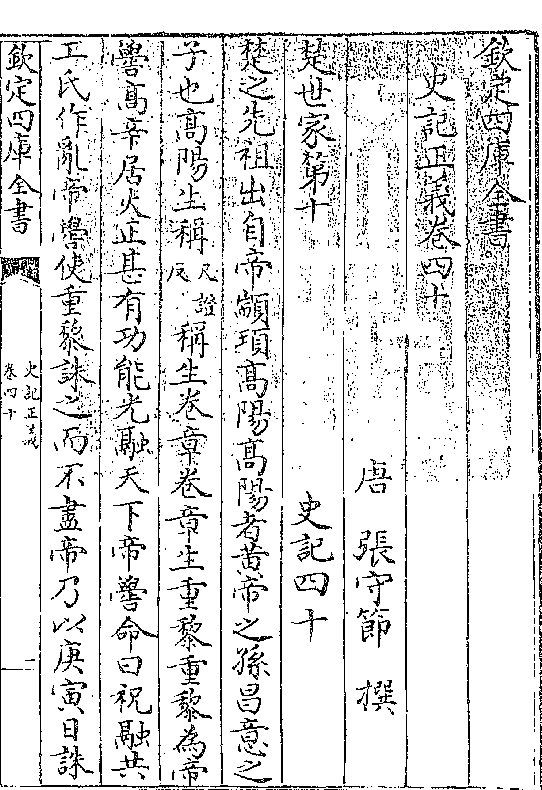 欽定四庫全書
史記正義卷四十
唐 張守節 撰
楚世家第十 史記四十
楚之先祖出自帝顓頊髙陽髙陽者黄帝之孫昌意之
子也髙陽生稱尺證反稱生卷章卷章生重黎重黎為帝
嚳髙辛居火正甚有功能光融天下帝嚳命曰祝融共
工氏作亂帝嚳使重黎誅之而不盡帝乃以庚寅日誅
欽定四庫全書
史記正義
卷四十
一